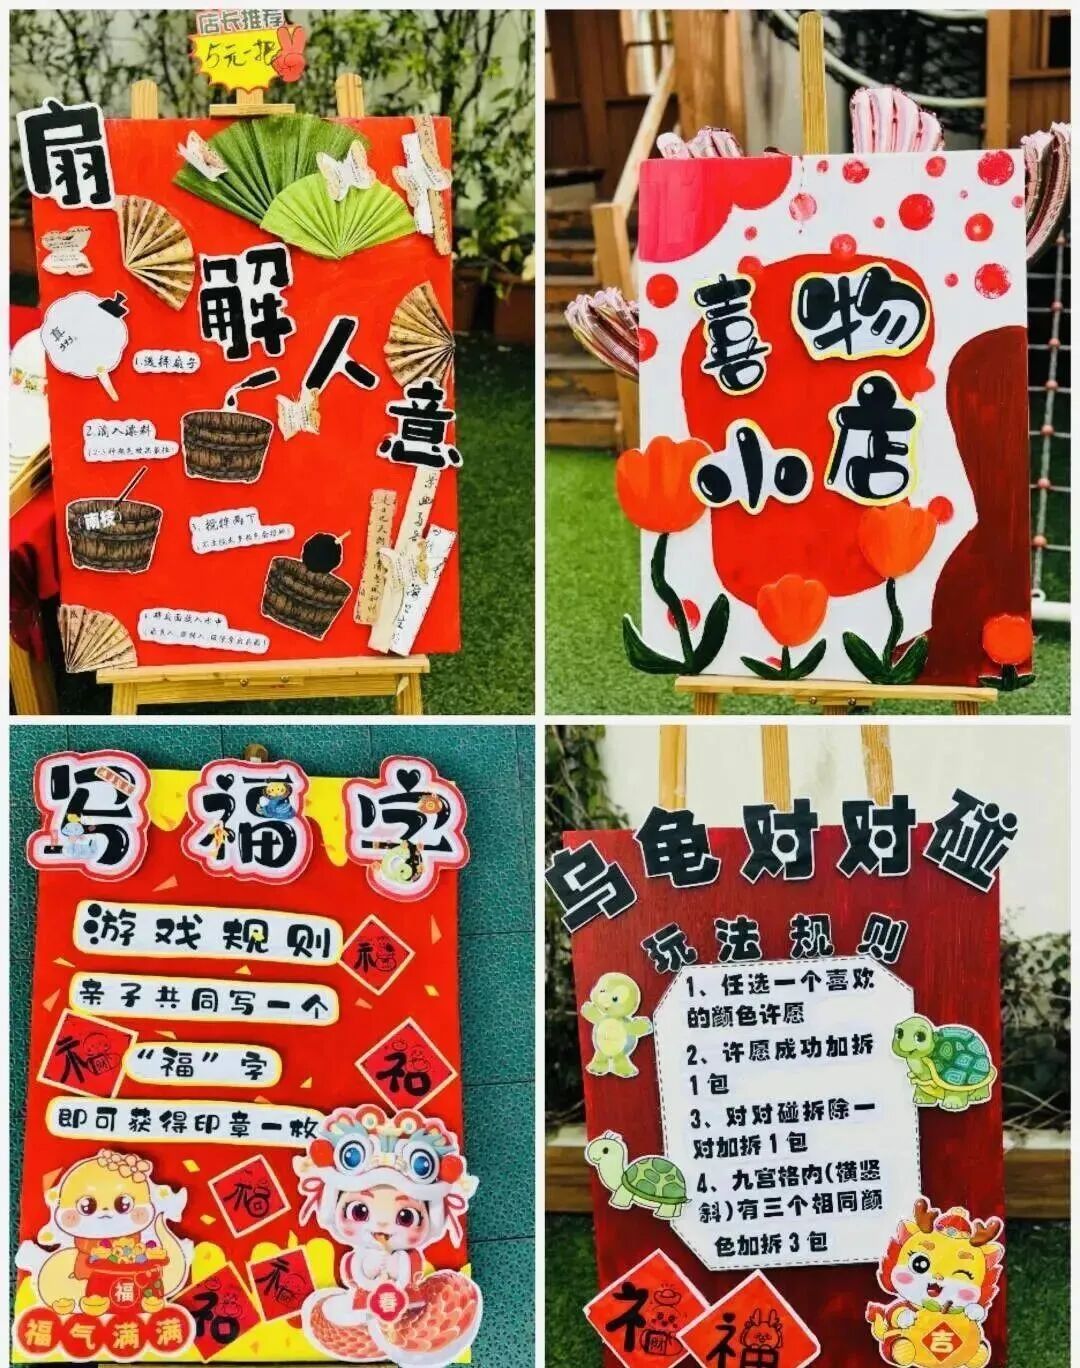 店长推荐
5元一把
扇
解
人
意
1.选择扇子
2.滴入染料
南枝
3.搅拌两下
4.将扇面放入水中
喜物
小店
写福字
游戏规则
亲子共同写一个
“福”字
即可获得印章一枚
福
福
福
福
福
福
福
春
福气满满
乌龟对对碰
玩法规则
1、任选一个喜欢
的颜色许愿
2、许愿成功加拆
1包
3、对对碰拆除一
对加拆1包
4、九宫格内(横竖
斜)有三个相同颜
色加拆3包
福
福
吉